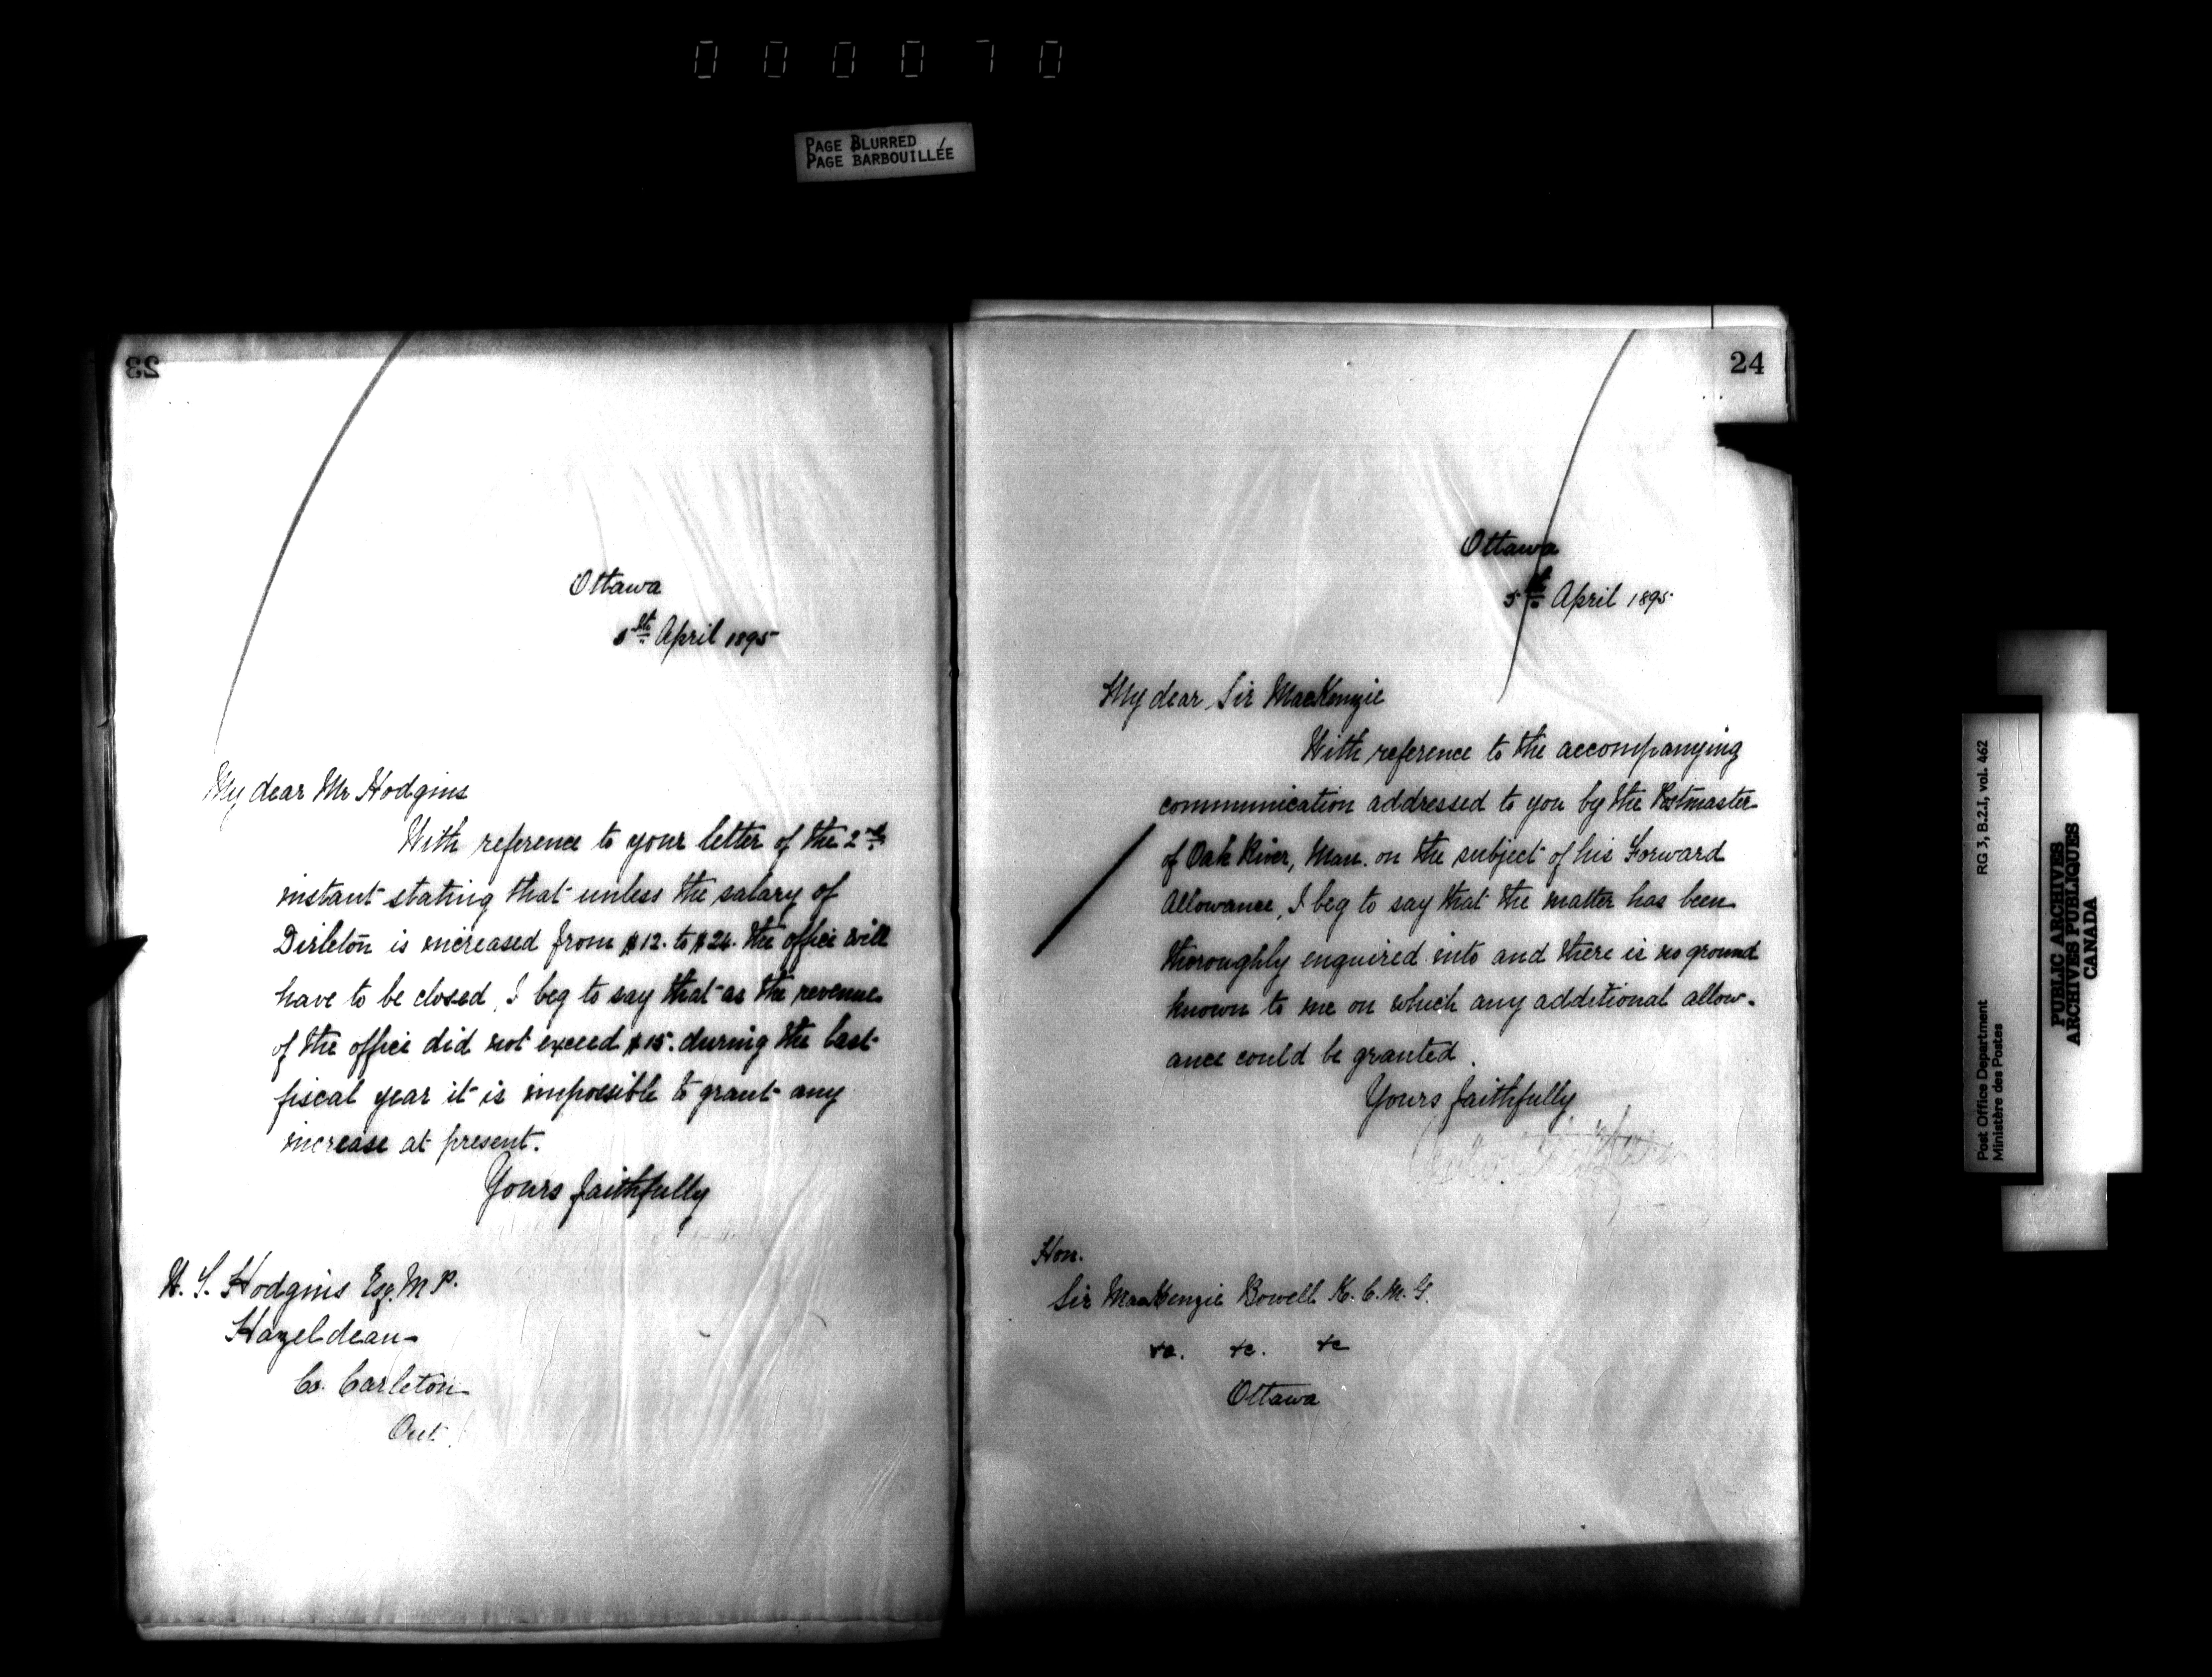 000070
PAGE BLURRED
PAGE BARBOUILLÉE
23
Ottawa
5th April 1895
My dear Mr Hodgins
With reference to your letter of the 2nd
instant stating that unless the salary of
Dirleton is increased from $12. to $24. the office will
have to be closed, I beg to say that as the revenue
of the office did not exceed $15. during the last
fiscal year it is impossible to grant any
increase at present.
Yours faithfully
Hodgins Esq. M.P.
Hazeldean
Co. Carleton
Ont.
24
Ottawa
5th April 1895
My dear Sir MacKenzie
With reference to the accompanying
communication addressed to you by the Postmaster
of Oak River, Man. on the subject of his Forward
Allowance, I beg to say that the matter has been
thoroughly enquired into and there is no ground
known to me on which any additional allow-
ance could be granted.
Yours faithfully
Hon.
Sir MacKenzie Bowell K.C.M.G.
&c. &c. &c
Ottawa
Post Office Department
Ministère des Postes
RG 3, B.2.I, vol. 462
PUBLIC ARCHIVES
ARCHIVES PUBLIQUES
CANADA